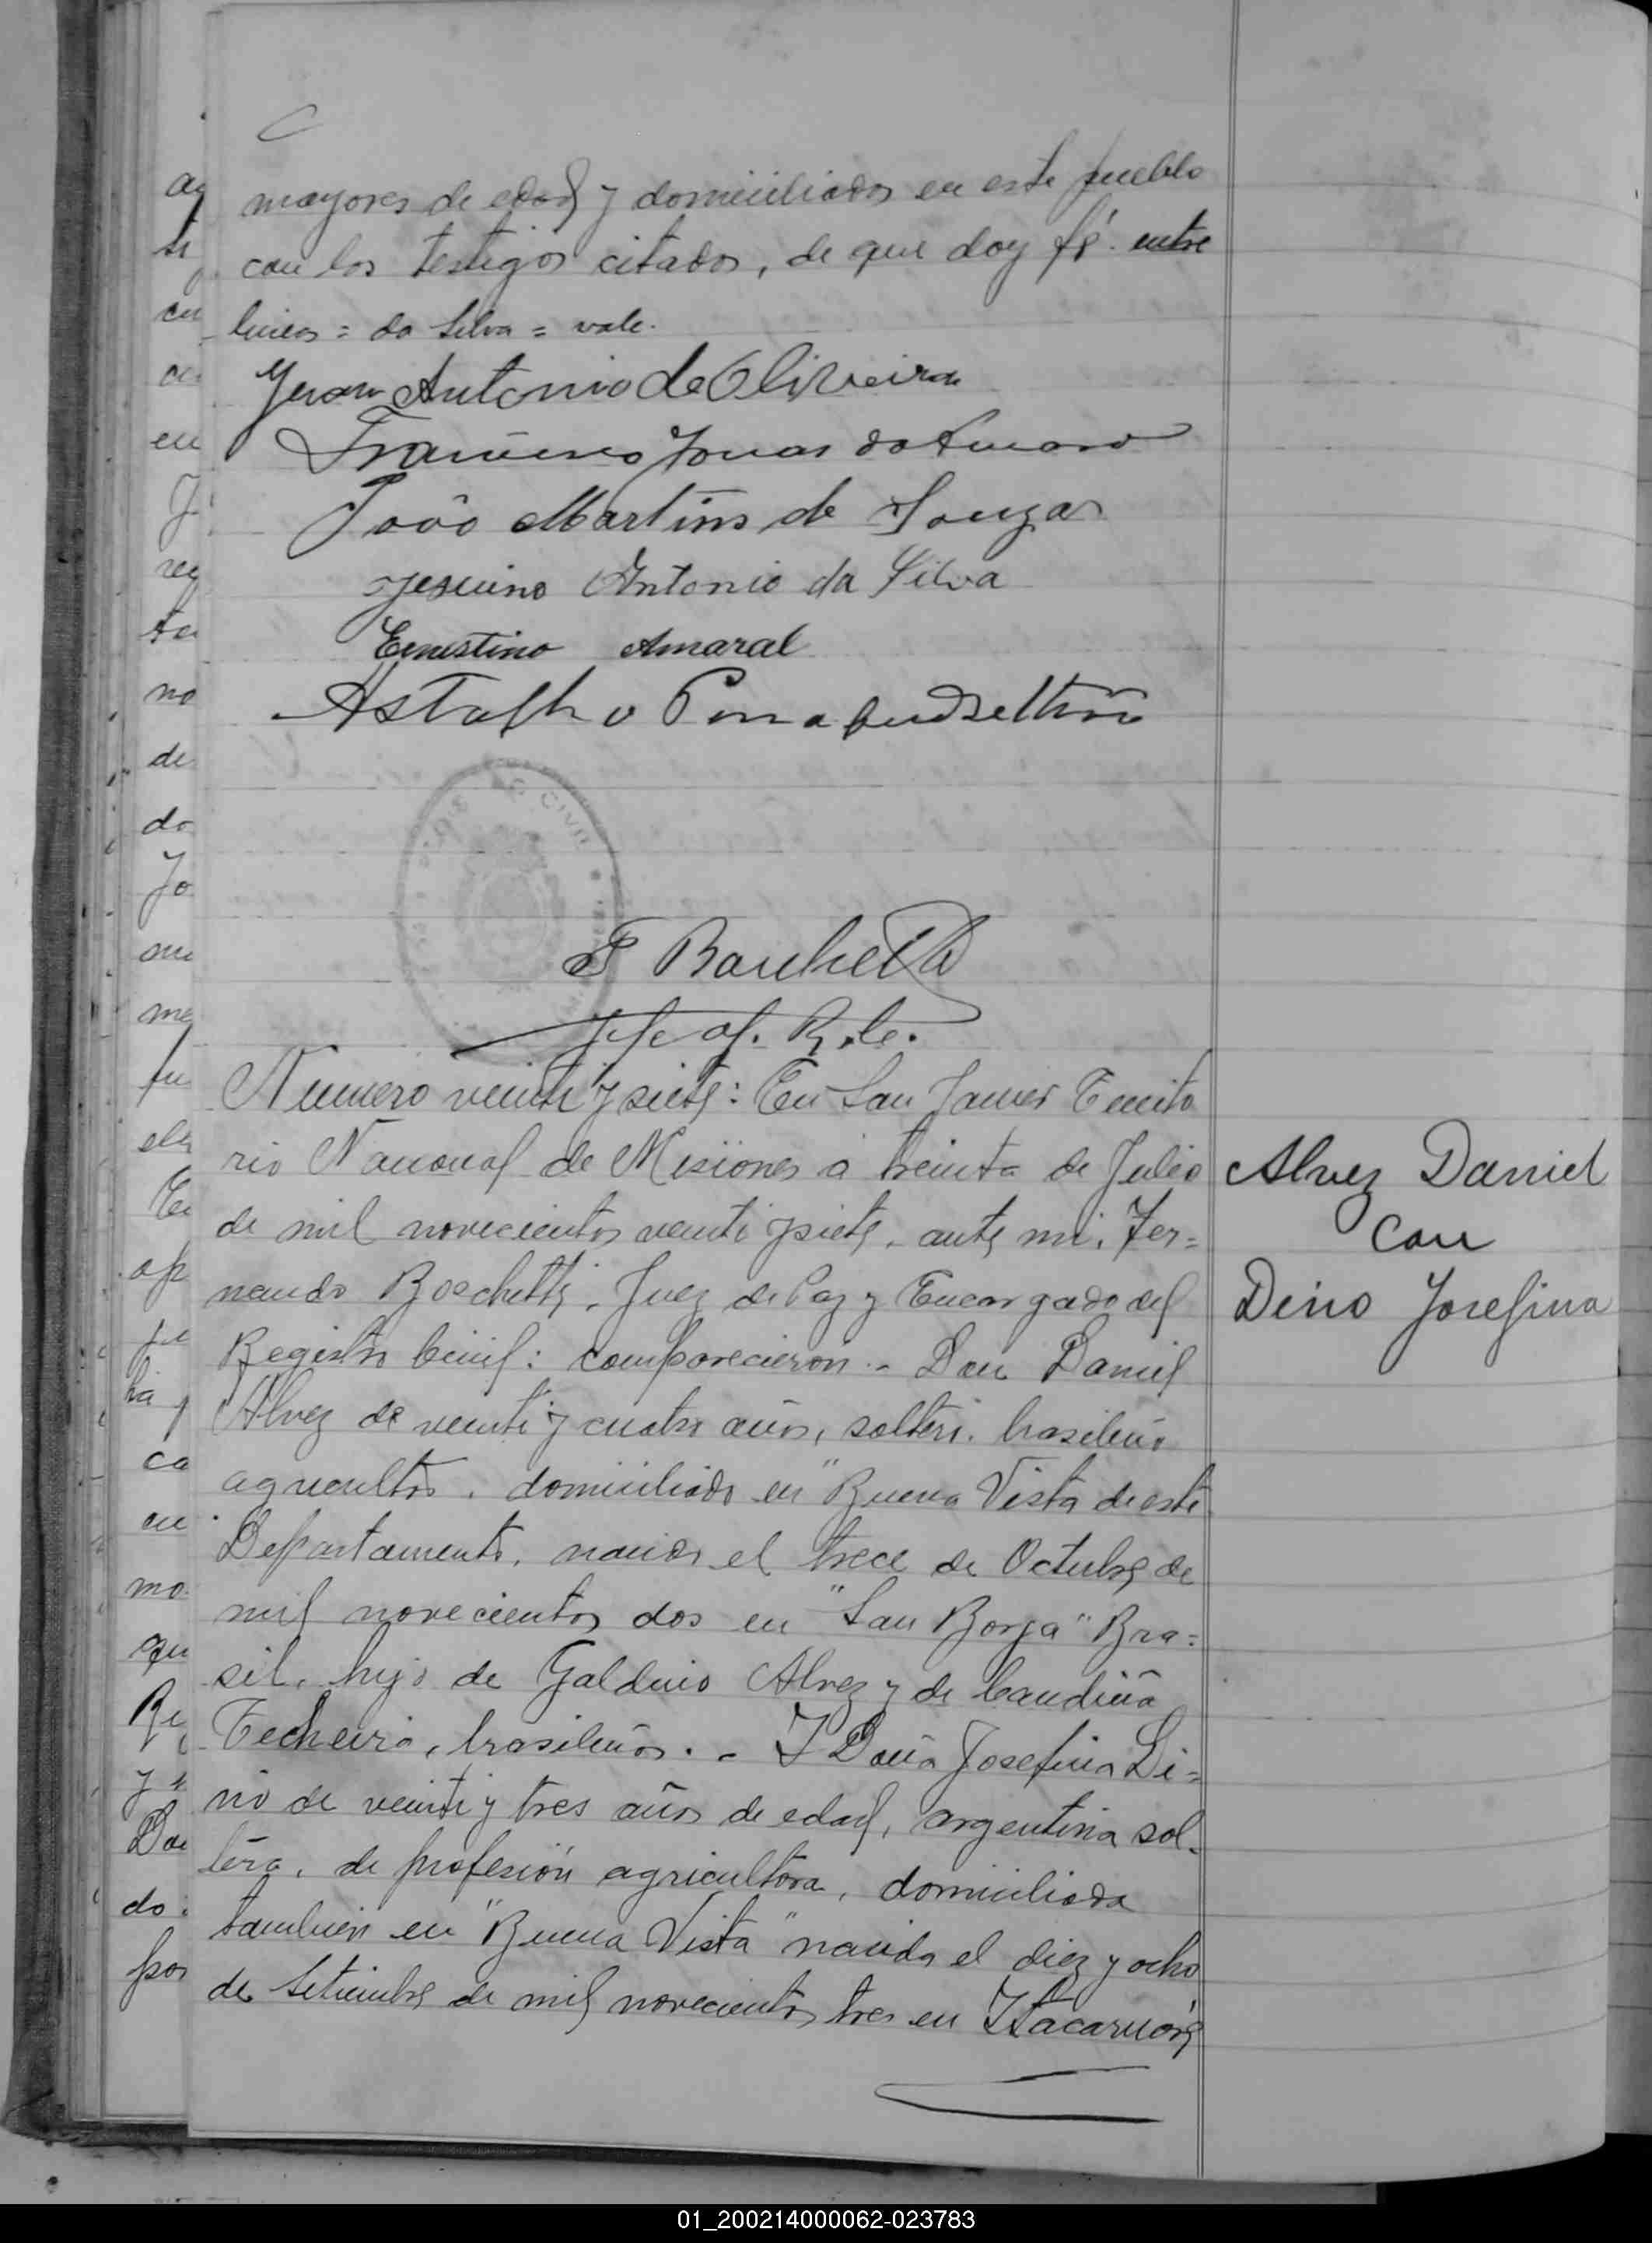 mayores de edad y domiciliados en este pueblo
con los testigos citados, de que doy fé. entre
lineas = da Silva = vale.
Juan Antonio de Oliveira
João Martins de Souza
Jesuino Antonio da Silva
Ernestino Amaral
F Boschetti
Jefe of. R. C.
Numero veinte y siete: En San Javier Territo
rio Nacional de Misiones a treinta de Julio
de mil novecientos veinte y siete, ante mi, Fer=
nando Boschetti, Juez de Paz y Encargado del
Registro Civil: comparecieron.- Don Daniel
Alvez de veinte y cuatro años, soltero, brasileño
agricultor, domiciliado en "Buena Vista de este
Departamento, nacido el trece de Octubre de
mil novecientos dos en "San Borja" Bra=
sil, hijo de Galduino Alvez y de Candiña
Techeira, brasileños. - Y Doña Josefina Di=
no de veinte y tres años de edad, argentina sol-
tera, de profesión agricultora, domiciliada
tambien en "Buena Vista" nacida el diez y ocho
de Setiembre de mil novecientos tres en Itacaruaré
Alvez Daniel
con
Dino Josefina
01_200214000062-023783